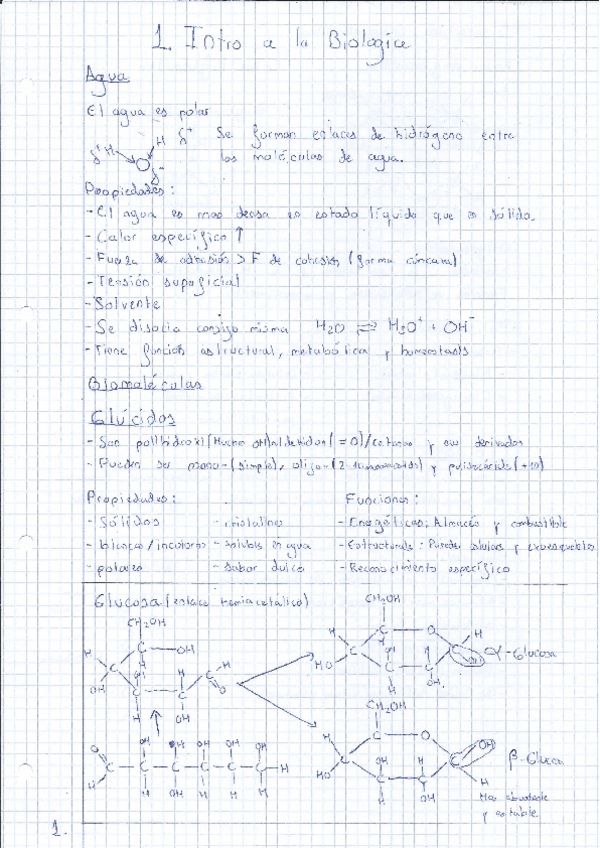 1. Intro a la Biologia
Agua
El agua es polar
δ+ H H δ+ Se forman enlaces de hidrógeno entre
δ- las moléculas de agua.
Propiedades:
- El agua es mas densa en estado líquido que en sólido.
- Calor específico ↑
- Fuerza de adhesión > F de cohesión (forma
- Tensión superficial
- Solvente
- Se disocia consigo misma H2O ⇌ H3O+ + OH-
- Tiene función estructural, metabólica y homeostasis
Biomoléculas
Glúcidos
- Son polihidroxi (Muchos OH) aldehidos (=O)/cetonas y sus derivados
- Pueden ser mono- (simple), oligo- (2- y polisacáridos (+10)
Propiedades: Funciones:
- Sólidos - cristalinos - Energéticas: Almacén y combustible
- blancos/incoloros - solubles en agua - Estructurales: Paredes celulares y exoesqueletos
- polares - Sabor dulce - Reconocimiento específico
Glucosa (enlace hemiacetálico)
CH2OH CH2OH
H C OH H C O H
C C C H HO C C C α-Glucosa
OH OH C C O H OH
H OH CH2OH
O OH OH OH OH OH H H C O OH
C C C C C C H HO C OH C β-Glucosa
H H OH H H H OH H
Mas abundante
y estable
1.